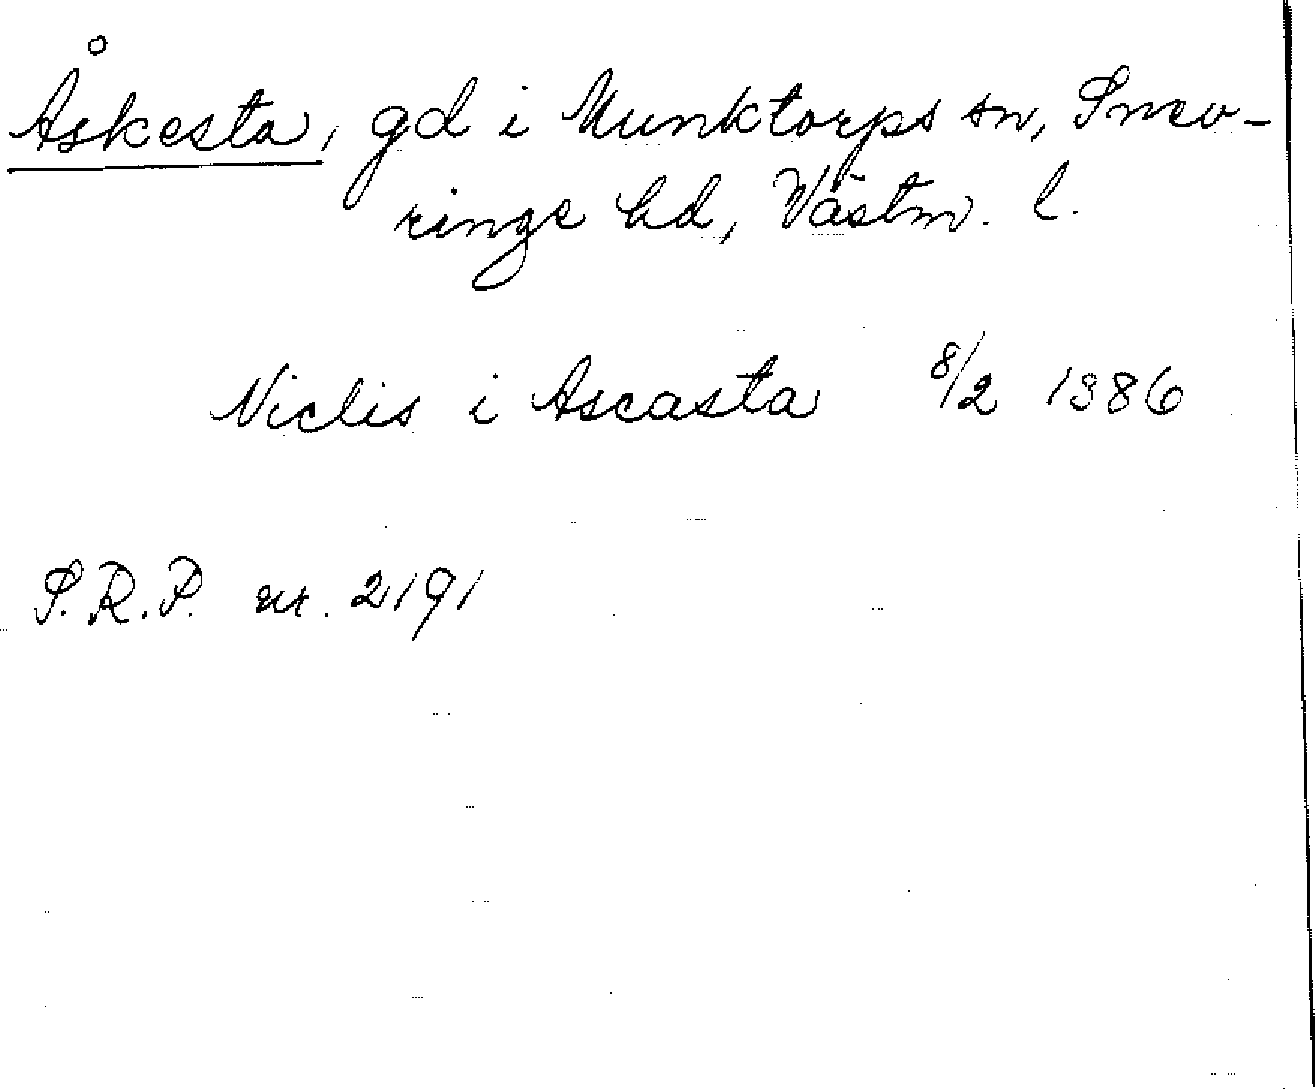 Åskesta, gd i Munktorps sn, Snev-
ringe hd, Västm. l.
Niclis i Ascasta 8/2 1386
S.R.P. nr. 2191